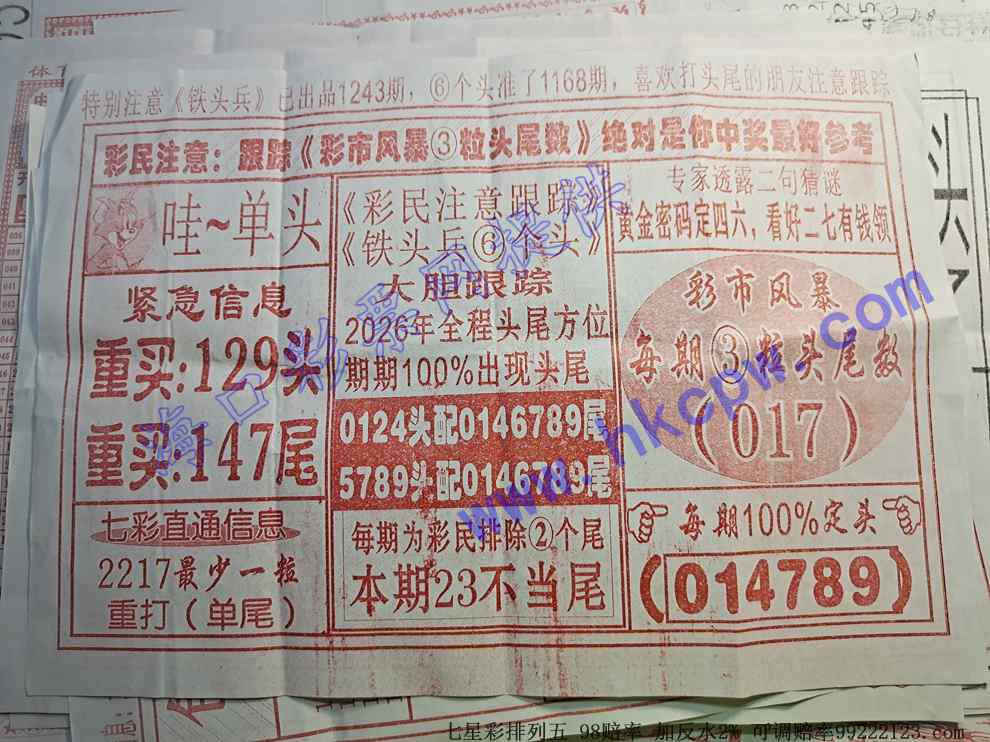 特别注意《铁头兵》已出品1243期，⑥个头准了1168期，喜欢打头尾的朋友注意跟踪
彩民注意：跟踪《彩市风暴③粒头尾数》绝对是你中奖最好参考
哇~单头
紧急信息
重买:129头
重买:147尾
七彩直通信息
2217最少一粒
重打（单尾）
《彩民注意跟踪》
《铁头兵⑥个头》
大胆跟踪
2026年全程头尾方位
期期100%出现头尾
0124头配0146789尾
5789头配0146789尾
每期为彩民排除②个尾
本期23不当尾
专家透露二句猜谜
黄金密码定四六，看好二七有钱领
彩市风暴
每期③粒头尾数
（017）
每期100%定头
（014789）
海口彩票网提供
www.hkcpw.com
七星彩排列五 98赔率 加反水2% 可调赔率99222123.com